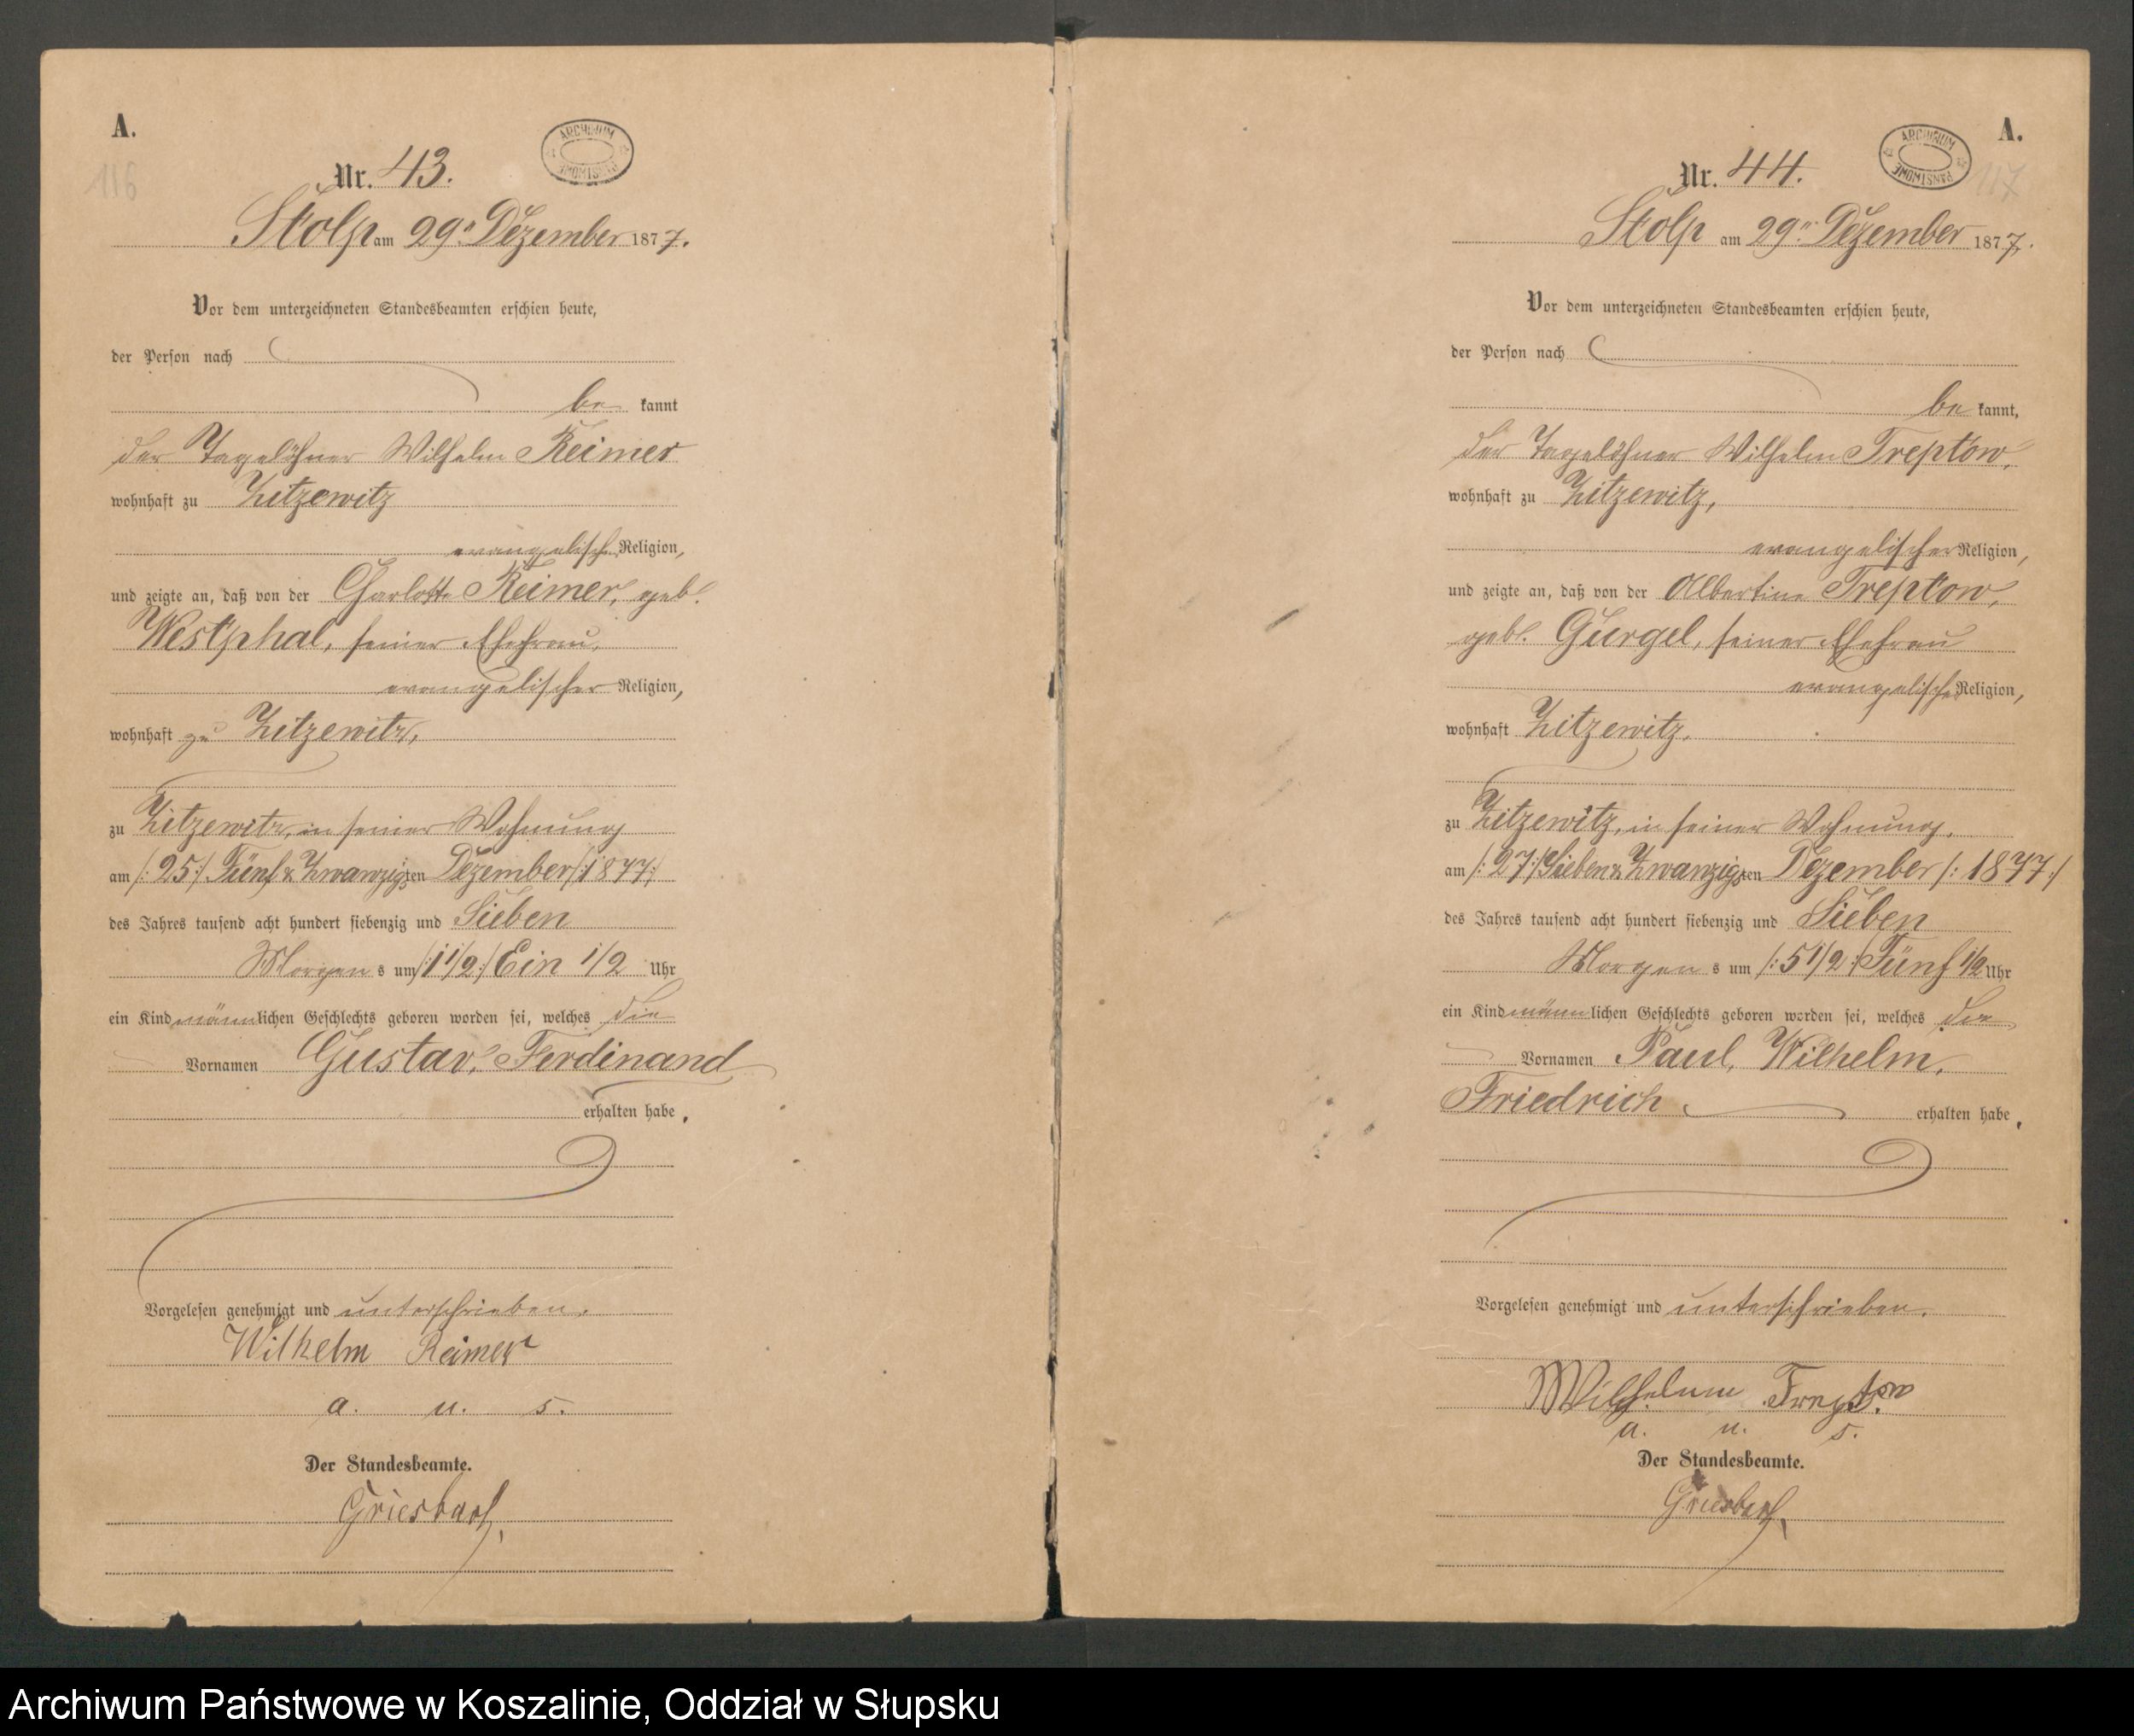 A.
116
Nr. 43.
ARCHIWUM PAŃSTWOWE
Stolp am 29n Dezember 1877.
Vor dem unterzeichneten Standesbeamten erschien heute,
der Person nach
be kannt
der Tagelöhner Wilhelm Reimer
wohnhaft zu Zitzewitz
evangelischer Religion,
und zeigte an, daß von der Charlotte Reimer, geb.
Westphal, seiner Ehefrau,
evangelischer Religion,
wohnhaft zu Zitzewitz,
zu Zitzewitz, in seiner Wohnung
am /:25:/ Fünf & Zwanzigsten Dezember /:1877:/
des Jahres tausend acht hundert siebenzig und Sieben
Morgen s um /:1 1/2:/ Ein 1/2 Uhr
ein Kind männlichen Geschlechts geboren worden sei, welches die
Vornamen Gustav, Ferdinand
erhalten habe.
Vorgelesen genehmigt und unterschrieben.
Wilhelm Reimer
a. u. s.
Der Standesbeamte.
Griesbach
A.
117
Nr. 44.
ARCHIWUM PAŃSTWOWE
Stolp am 29n Dezember 1877.
Vor dem unterzeichneten Standesbeamten erschien heute,
der Person nach
be kannt,
der Tagelöhner Wilhelm Treptow,
wohnhaft zu Zitzewitz,
evangelischer Religion,
und zeigte an, daß von der Albertine Treptow,
geb. Gurgel, seiner Ehefrau
evangelischer Religion,
wohnhaft Zitzewitz,
zu Zitzewitz, in seiner Wohnung,
am /:27:/ Sieben & Zwanzigsten Dezember /:1877:/
des Jahres tausend acht hundert siebenzig und Sieben
Morgen s um /:5 1/2:/ Fünf 1/2 Uhr
ein Kind männlichen Geschlechts geboren worden sei, welches die
Vornamen Paul, Wilhelm,
Friedrich erhalten habe.
Vorgelesen genehmigt und unterschrieben.
Wilhelm Treptow
a. u. s.
Der Standesbeamte.
Griesbach
Archiwum Państwowe w Koszalinie, Oddział w Słupsku